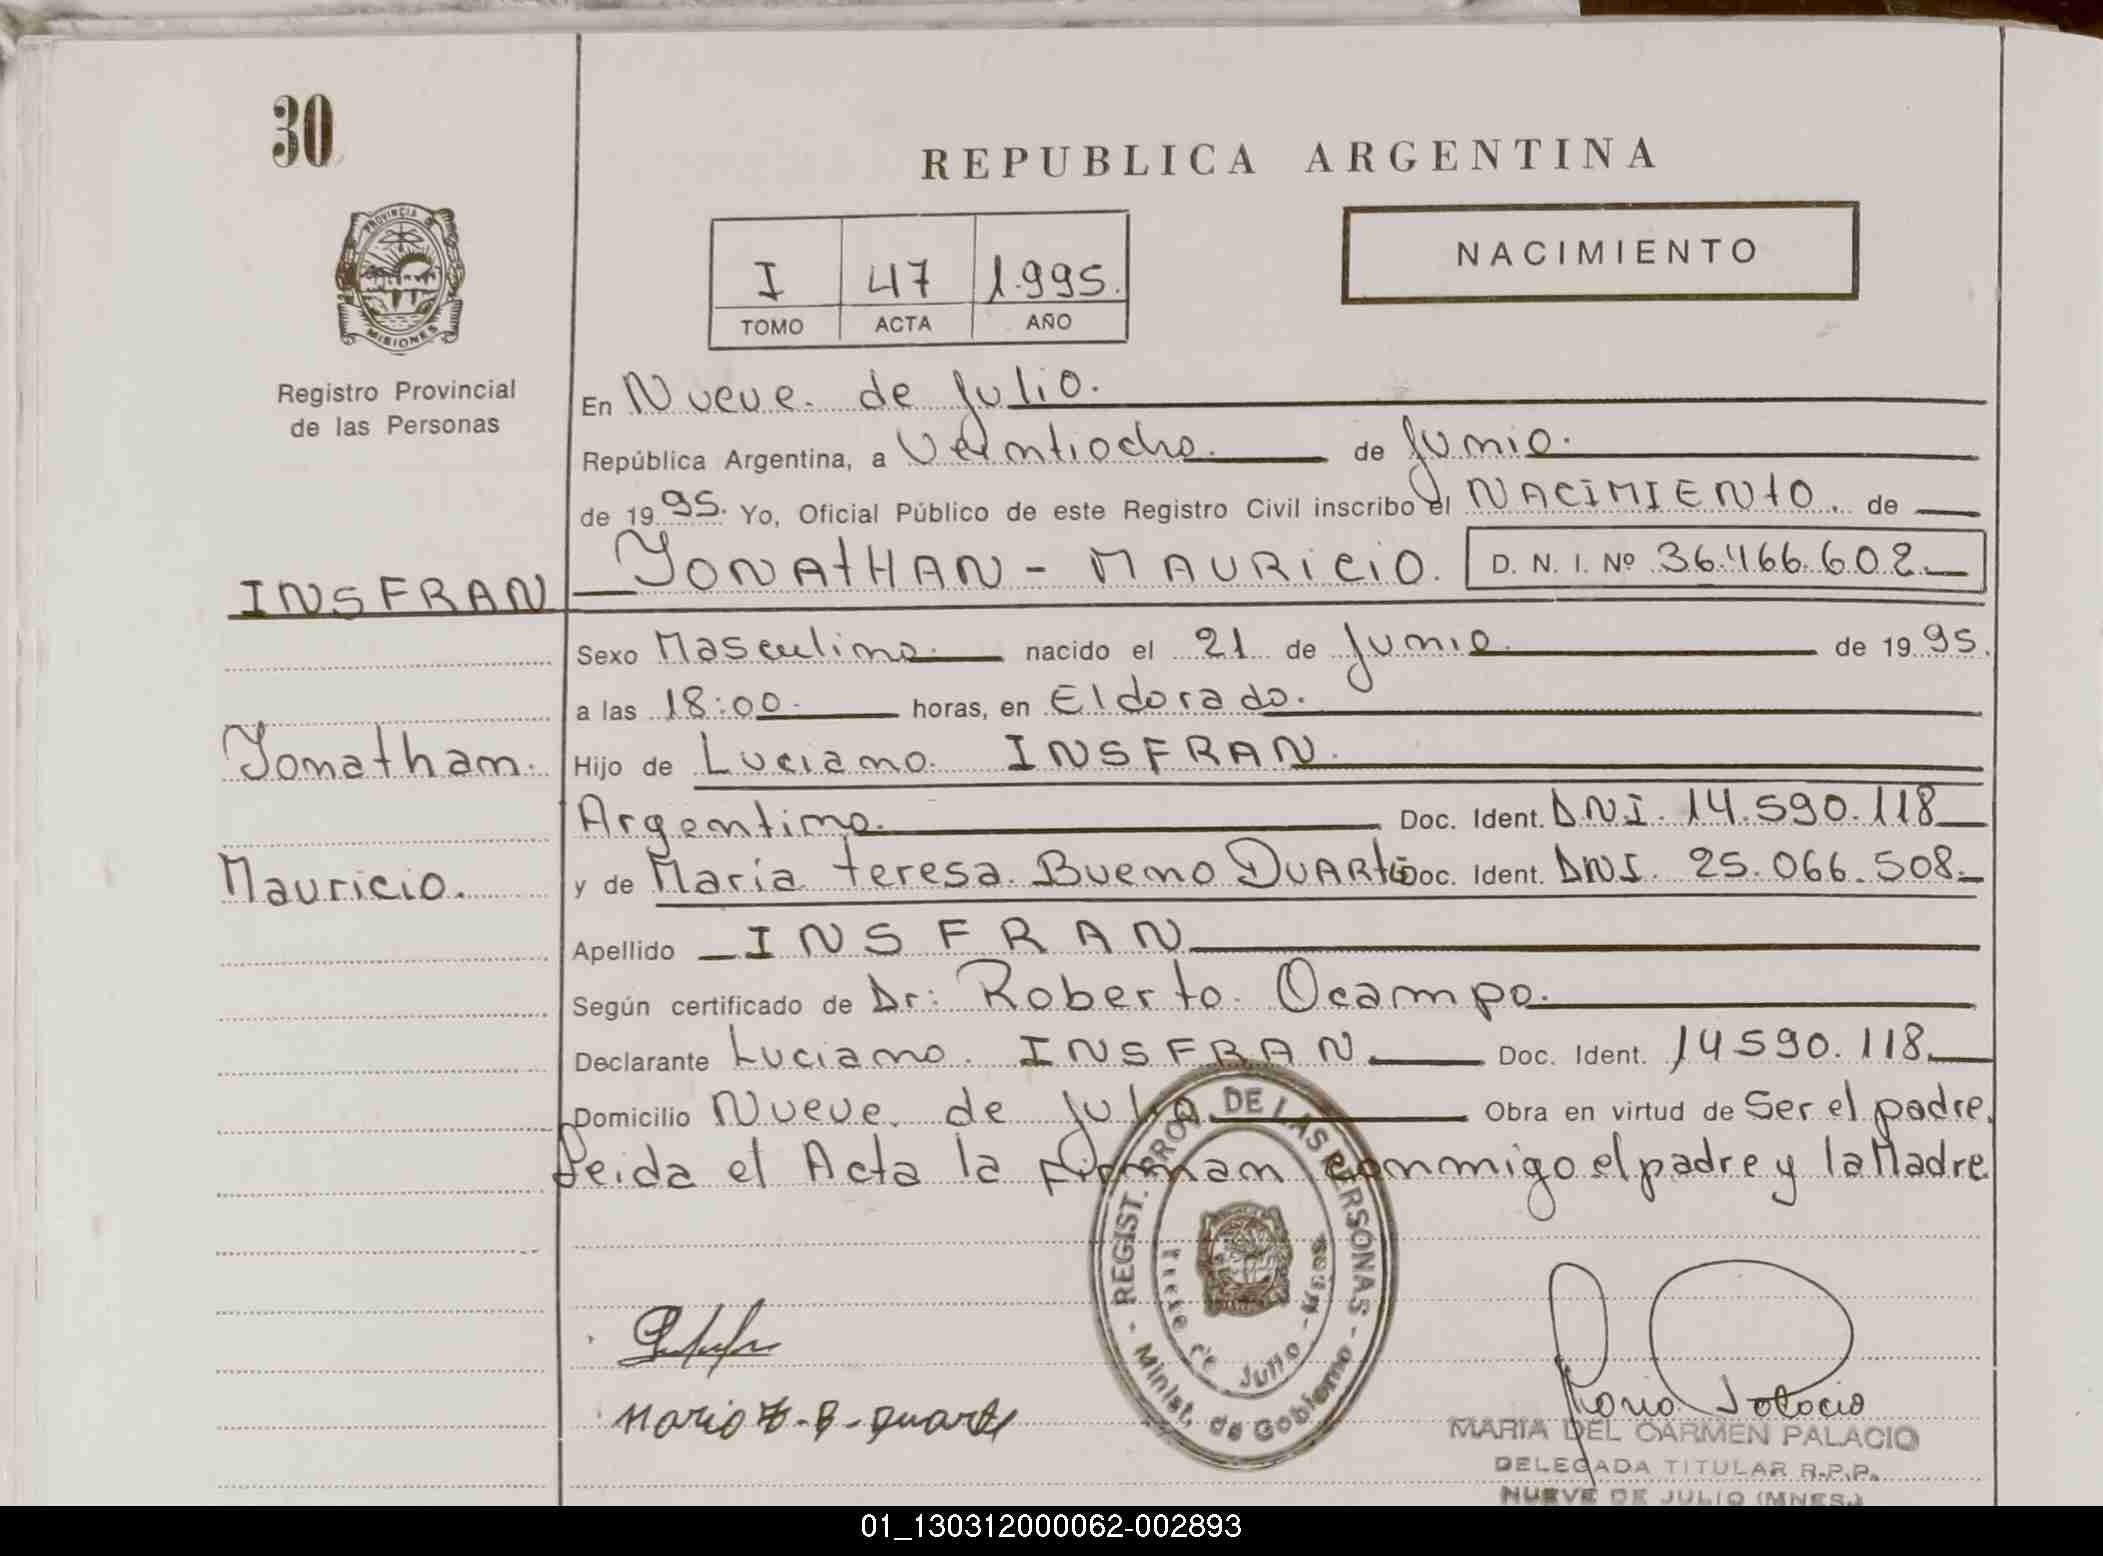 30
REPUBLICA ARGENTINA
PROVINCIA
MISIONES
NACIMIENTO
I 47 1.995.
TOMO ACTA AÑO
Registro Provincial
de las Personas
En Nueve de Julio.
República Argentina, a Veintiocho. de Junio.
de 1995. Yo, Oficial Público de este Registro Civil inscribo el NACIMIENTO de
INSFRAN
YONATHAN - MAURICIO. D. N. I. Nº 36.466.602
Sexo Masculino. nacido el 21 de Junio de 1995.
a las 18:00. horas, en Eldorado.
Yonathan.
Hijo de Luciano INSFRAN.
Argentino. Doc. Ident. DNI. 14.590.118
Mauricio.
y de María teresa Bueno DUARTE Doc. Ident. DNI. 25.066.508
Apellido INSFRAN
Según certificado de Dr: Roberto Ocampo.
Declarante Luciano INSFRAN Doc. Ident. 14590.118
Domicilio Nueve de Julio Obra en virtud de Ser el padre.
Leida el Acta la firman conmigo el padre y la Madre
REGIST. PROV. DE LAS PERSONAS
Nueve de Julio - Mnes
- Minist. de Gobierno -
Maria T. B. Duarte
Maria Palacio
MARIA DEL CARMEN PALACIO
DELEGADA TITULAR R.P.P.
NUEVE DE JULIO (MNES.)
01_130312000062-002893